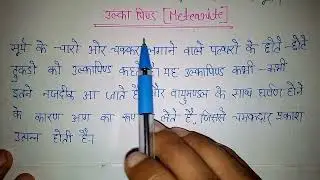 उल्का पिण्ड [Meteorite]
सूर्य के चारो ओर चक्कर लगाने वाले पत्थरो के छोटे-छोटे
टुकडो को उल्कापिण्ड कहते है। यह उल्कापिण्ड कभी-कभी
इतने नजदीक आ जाते है और वायुमण्डल के साथ घर्षण होने
के कारण आग का रूप लेते है, जिससे चमकदार प्रकाश
उत्पन्न होती है।